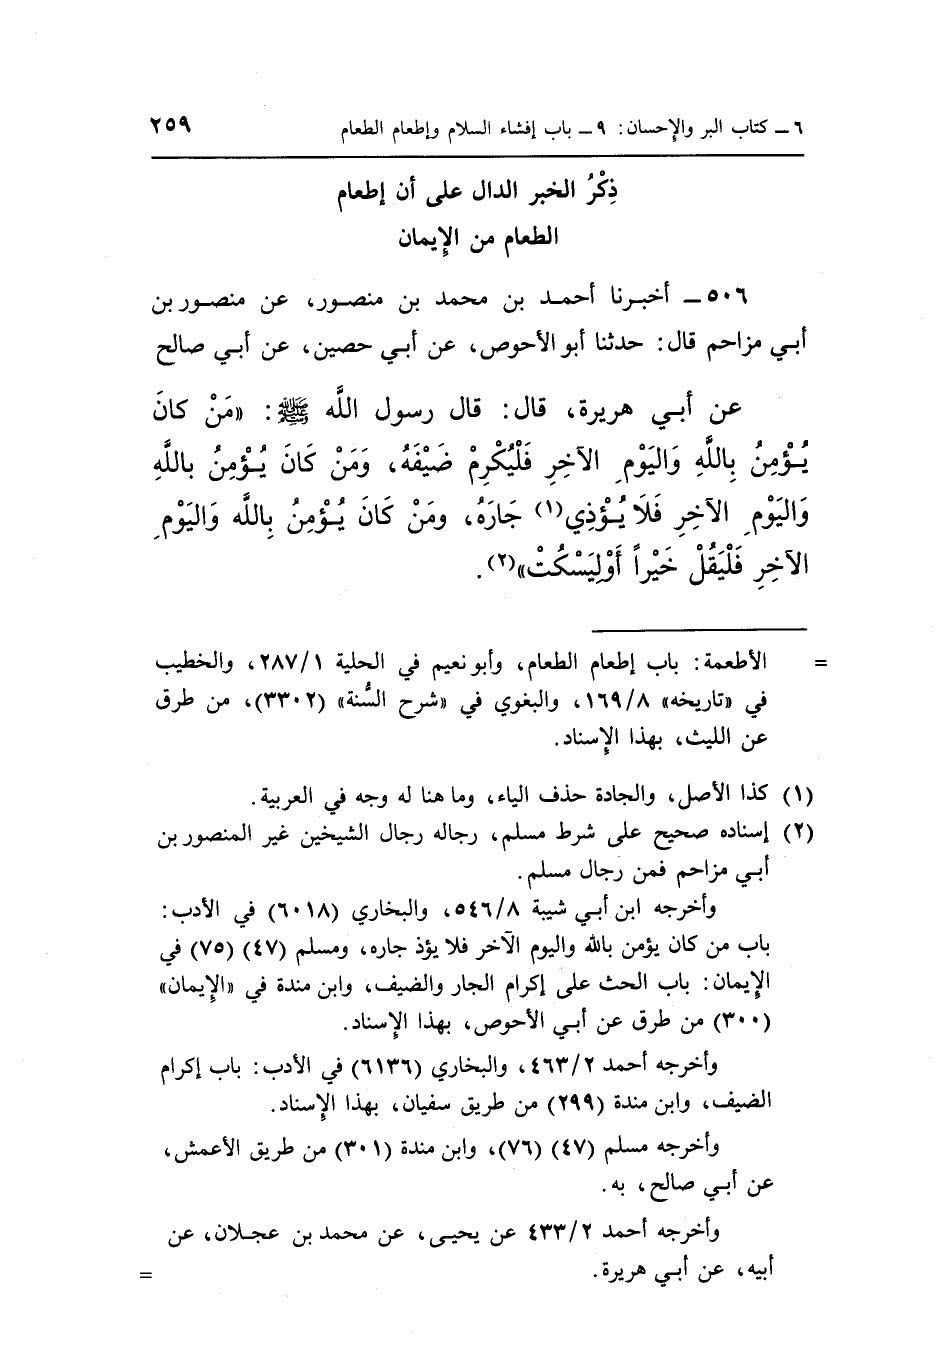 ٦ ـ كتاب البر والإحسان: ٩ ـ باب إفشاء السلام وإطعام الطعام ٢٥٩
ذِكْرُ الخبر الدال على أن إطعام
الطعام من الإيمان
٥٠٦ ـ أخبرنا أحمد بن محمد بن منصور، عن منصور بن
أبي مزاحم قال: حدثنا أبو الأحوص، عن أبي حصين، عن أبي صالح
عن أبي هريرة، قال: قال رسول اللَّه ﷺ: «مَنْ كانَ
يُؤْمِنُ بِاللَّهِ وَاليَوْمِ الآخِرِ فَلْيُكْرِمْ ضَيْفَهُ، وَمَنْ كَانَ يُؤْمِنُ باللَّهِ
وَاليَوْمِ الآخِرِ فَلَا يُؤْذِي(١) جَارَهُ، ومَنْ كَانَ يُؤْمِنُ بِاللَّه وَاليَوْمِ
الآخِرِ فَلْيَقُلْ خَيْراً أَوْلِيَسْكُتْ»(٢).
= الأطعمة: باب إطعام الطعام، وأبو نعيم في الحلية ٢٨٧/١، والخطيب
في «تاريخه» ١٦٩/٨، والبغوي في «شرح السُّنة» (٣٣٠٢)، من طرق
عن الليث، بهذا الإسناد.
(١) كذا الأصل، والجادة حذف الياء، وما هنا له وجه في العربية.
(٢) إسناده صحيح على شرط مسلم، رجاله رجال الشيخين غير المنصور بن
أبي مزاحم فمن رجال مسلم.
وأخرجه ابن أبي شيبة ٥٤٦/٨، والبخاري (٦٠١٨) في الأدب:
باب من كان يؤمن بالله واليوم الآخر فلا يؤذ جاره، ومسلم (٤٧) (٧٥) في
الإيمان: باب الحث على إكرام الجار والضيف، وابن مندة في «الإيمان»
(٣٠٠) من طرق عن أبي الأحوص، بهذا الإسناد.
وأخرجه أحمد ٤٦٣/٢، والبخاري (٦١٣٦) في الأدب: باب إكرام
الضيف، وابن مندة (٢٩٩) من طريق سفيان، بهذا الإسناد.
وأخرجه مسلم (٤٧) (٧٦)، وابن مندة (٣٠١) من طريق الأعمش،
عن أبي صالح، به.
وأخرجه أحمد ٤٣٣/٢ عن يحيى، عن محمد بن عجلان، عن
أبيه، عن أبي هريرة. =